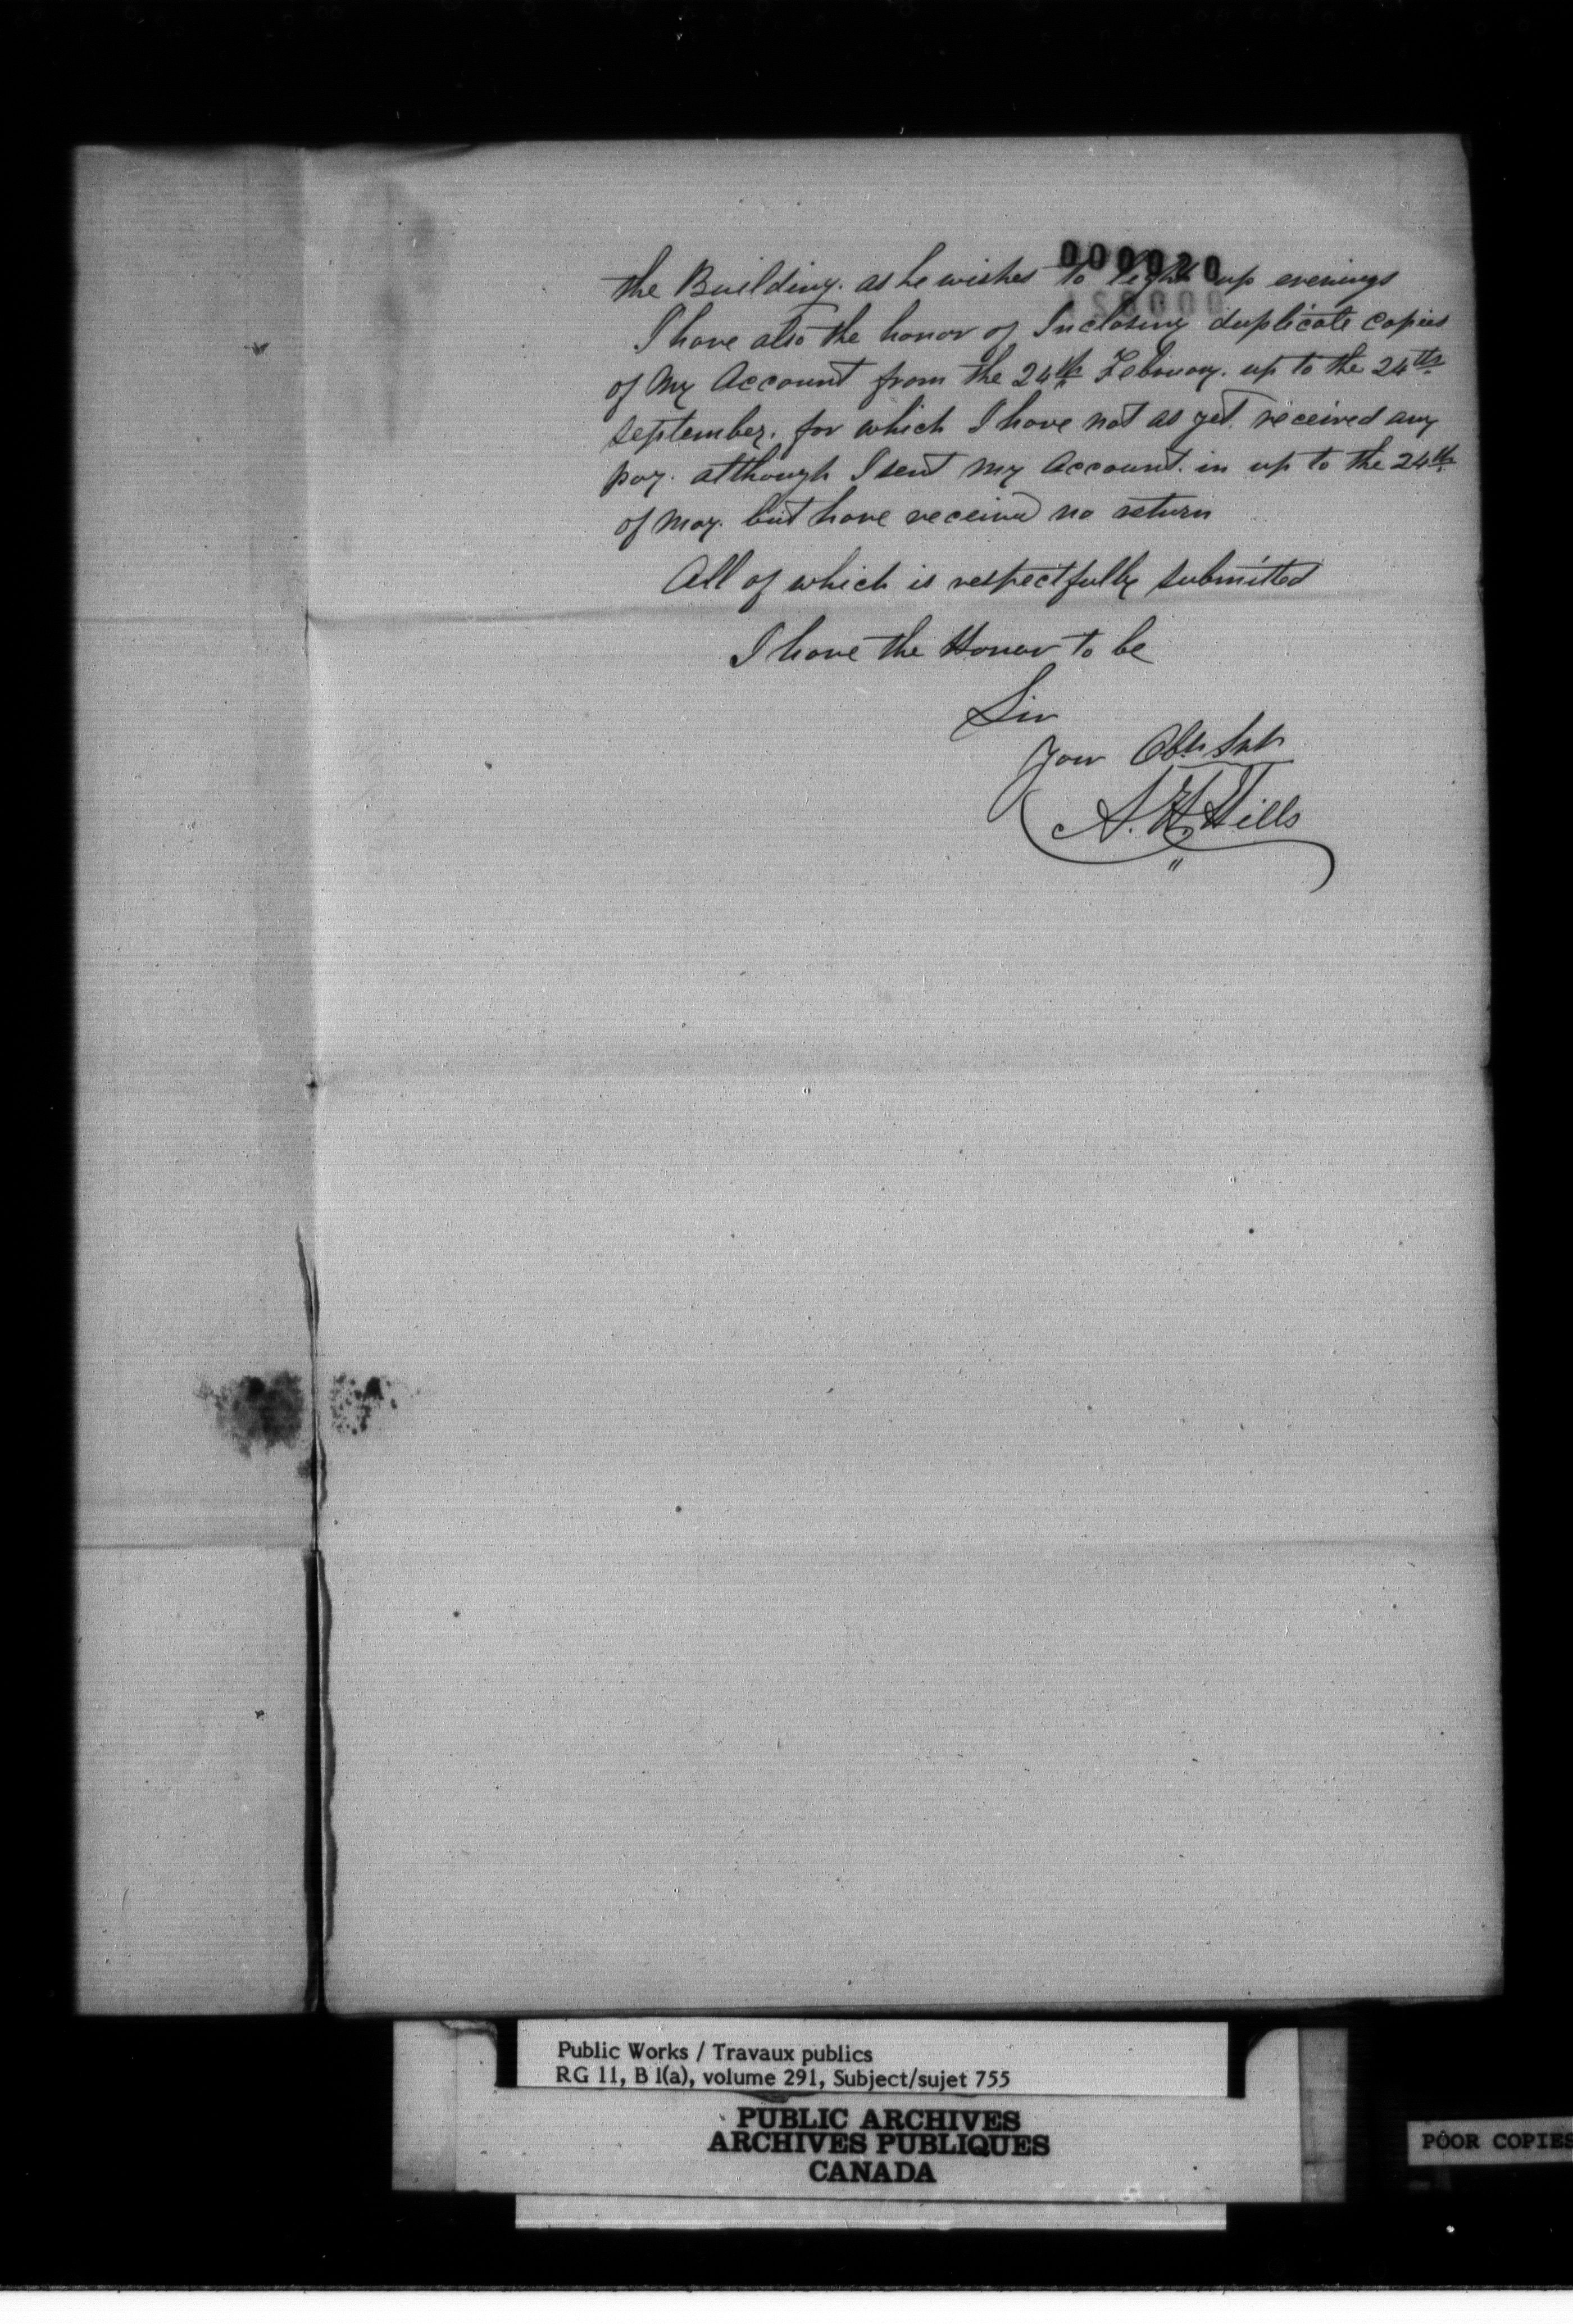 000020
the Building. as he wishes to light up evenings
I have also the honor of Inclosing duplicate copies
of My Account from the 24th February. up to the 24th
September. for which I have not as yet received any
pay. although I sent my Account. in up to the 24th
of may. but have received no return
All of which is respectfully submitted
I have the Honor to be
Sir
Your Obt Svt
Public Works / Travaux publics
RG 11, B 1(a), volume 291, Subject/sujet 755
PUBLIC ARCHIVES
ARCHIVES PUBLIQUES
CANADA
POOR COPIES